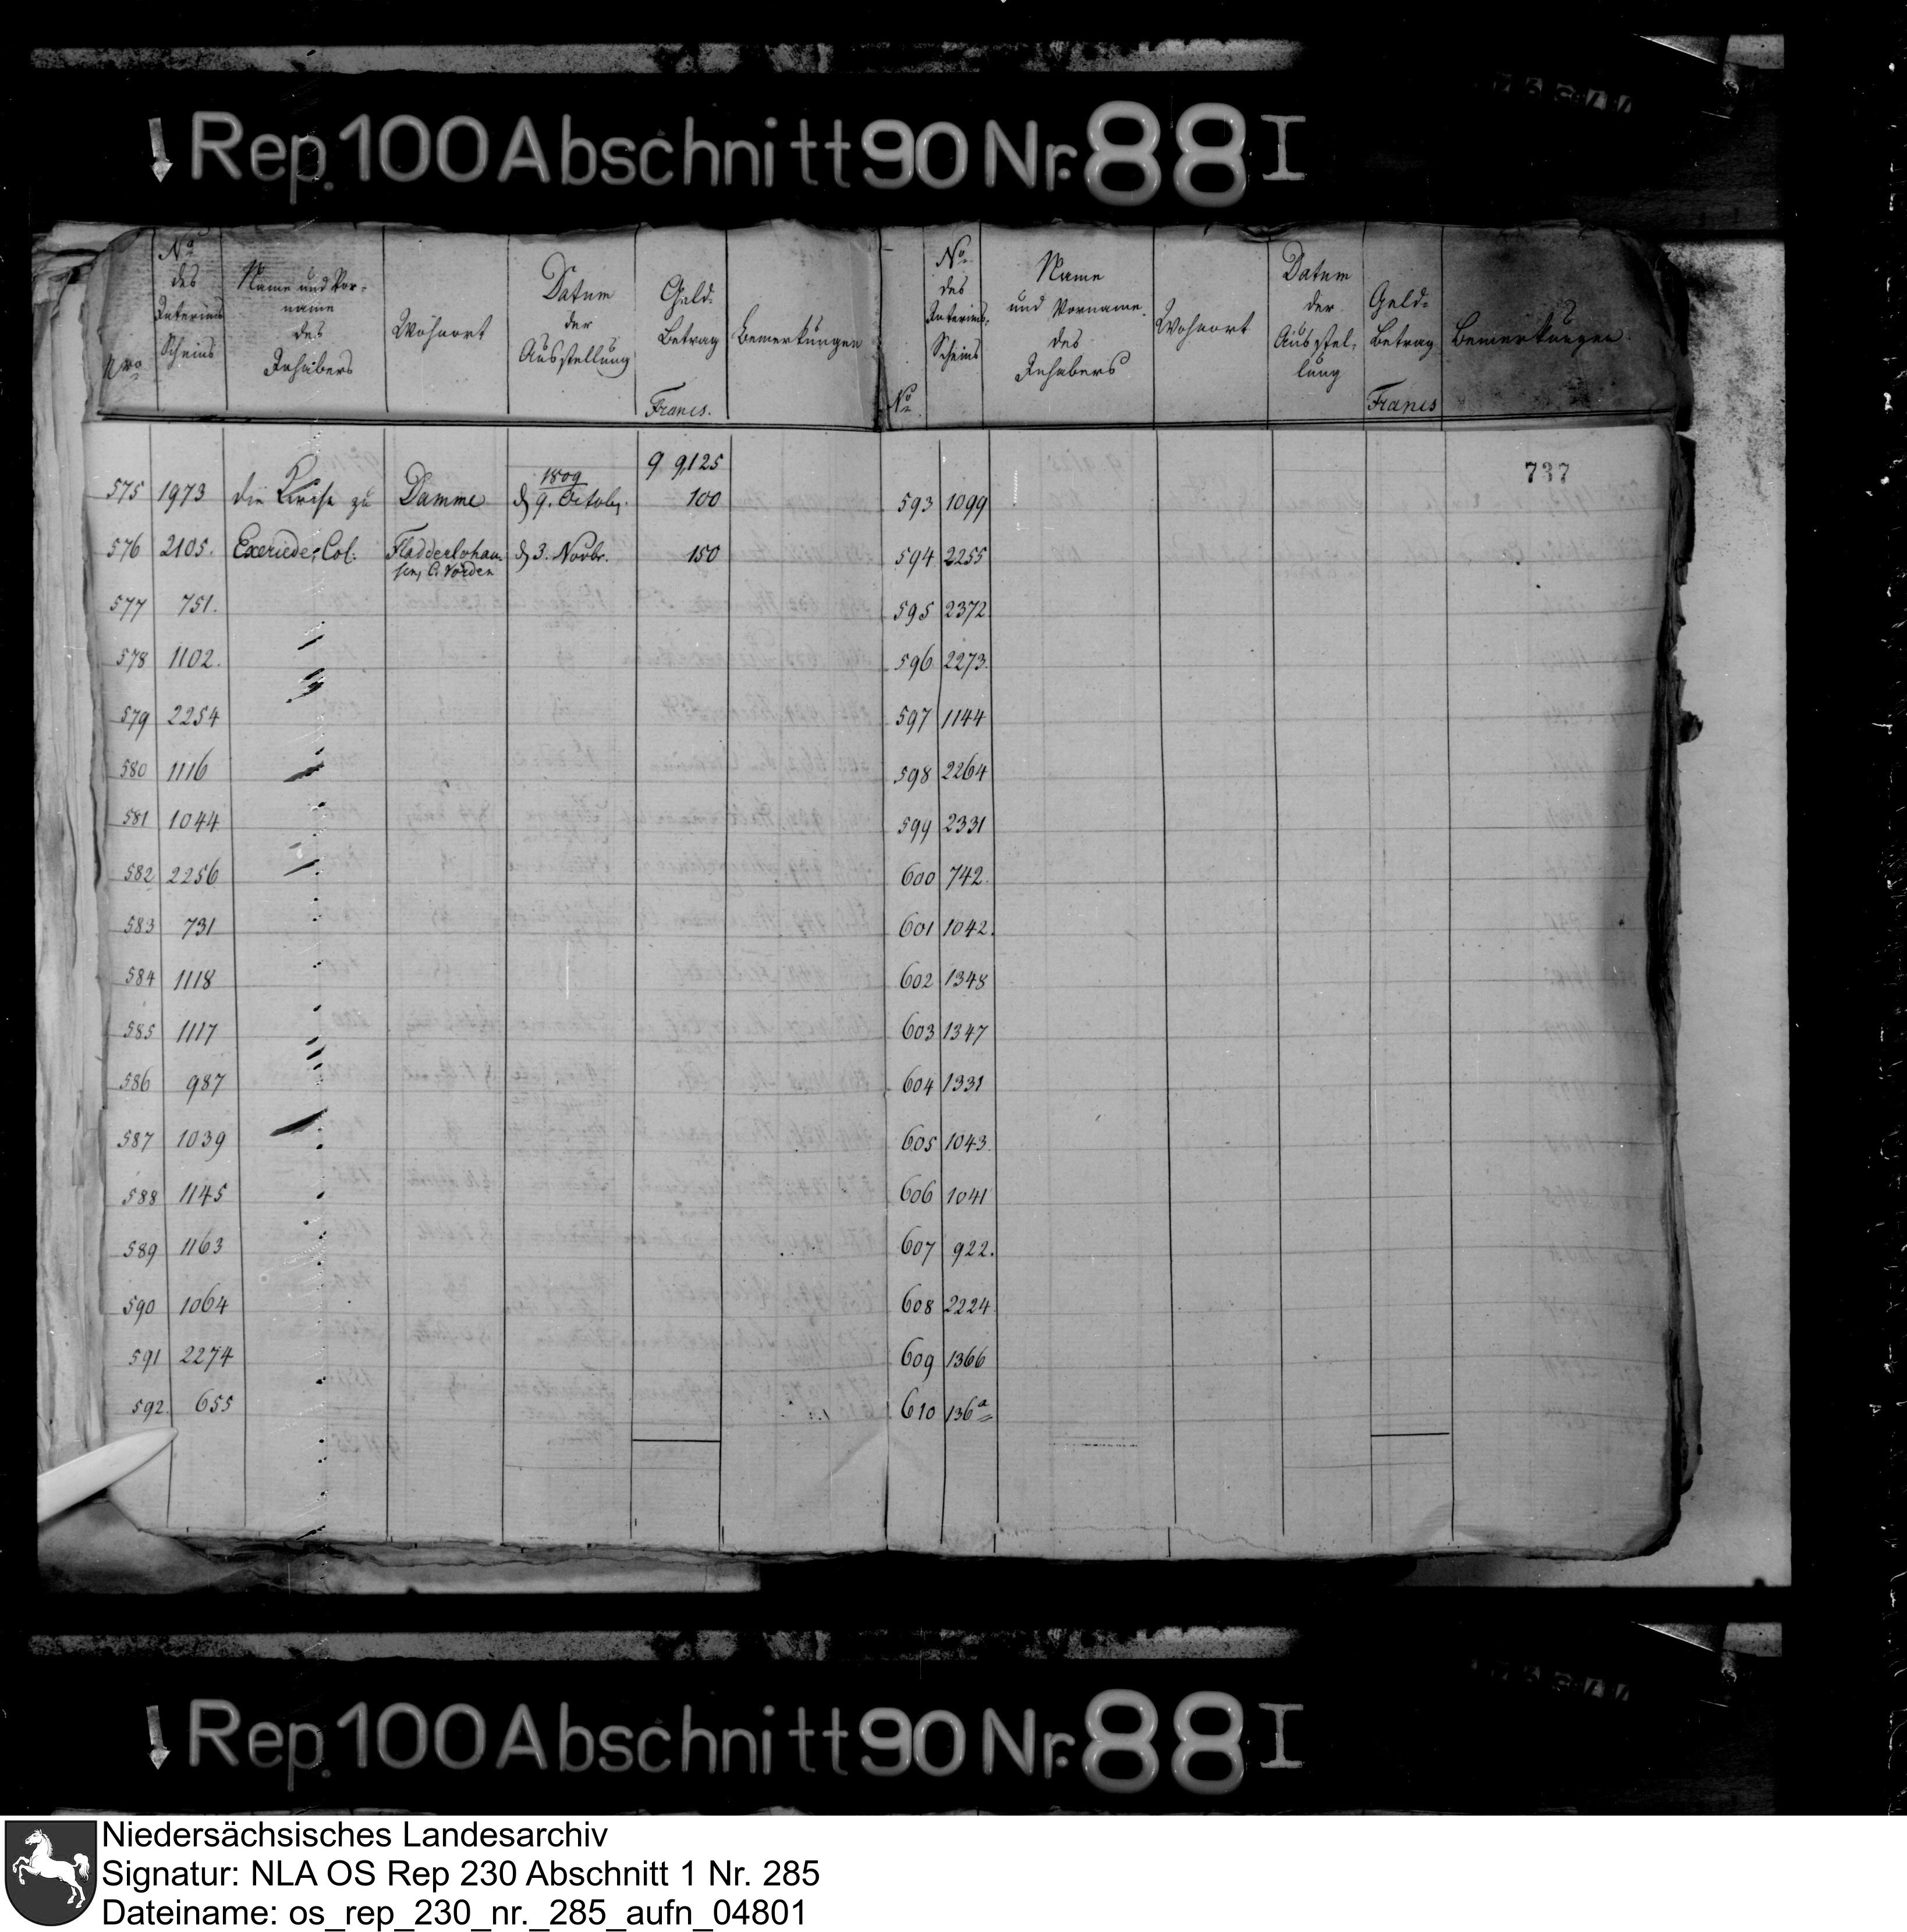 Rep. 100 Abschnitt 90 Nr. 88 I
Nro
No des Interims Scheins
Name und Vor-
name
des
Inhabers
Wohnort
Datum
der
Ausstellung
Geld-
Betrag
Francs.
Bemerkungen
No
No des Interims- Scheins
Name
und Vorname
des
Inhabers
Wohnort
Datum
der
Ausstel-
lung
Geld-
Betrag
Francs
Bemerkungen.
9 9125
737
575 1973 die Kirche zu Damme 1809 d 9. Octobr. 100
576 2105. Exeriede, Col: Fladderlohau-
sen, C. Vörden d 3. Novbr. 150
577 751.
578 1102.
579 2254
580 1116
581 1044
582 2256
583 731
584 1118
585 1117
586 987
587 1039
588 1145
589 1163
590 1064
591 2274
592. 655
593 1099
594 2255
595 2372
596 2273.
597 1144
598 2264
599 2331
600 742.
601 1042.
602 1348
603 1347
604 1331
605 1043.
606 1041
607 922.
608 2224
609 1366
610 136a
Rep. 100 Abschnitt 90 Nr. 88 I
Niedersächsisches Landesarchiv
Signatur: NLA OS Rep 230 Abschnitt 1 Nr. 285
Dateiname: os_rep_230_nr._285_aufn_04801